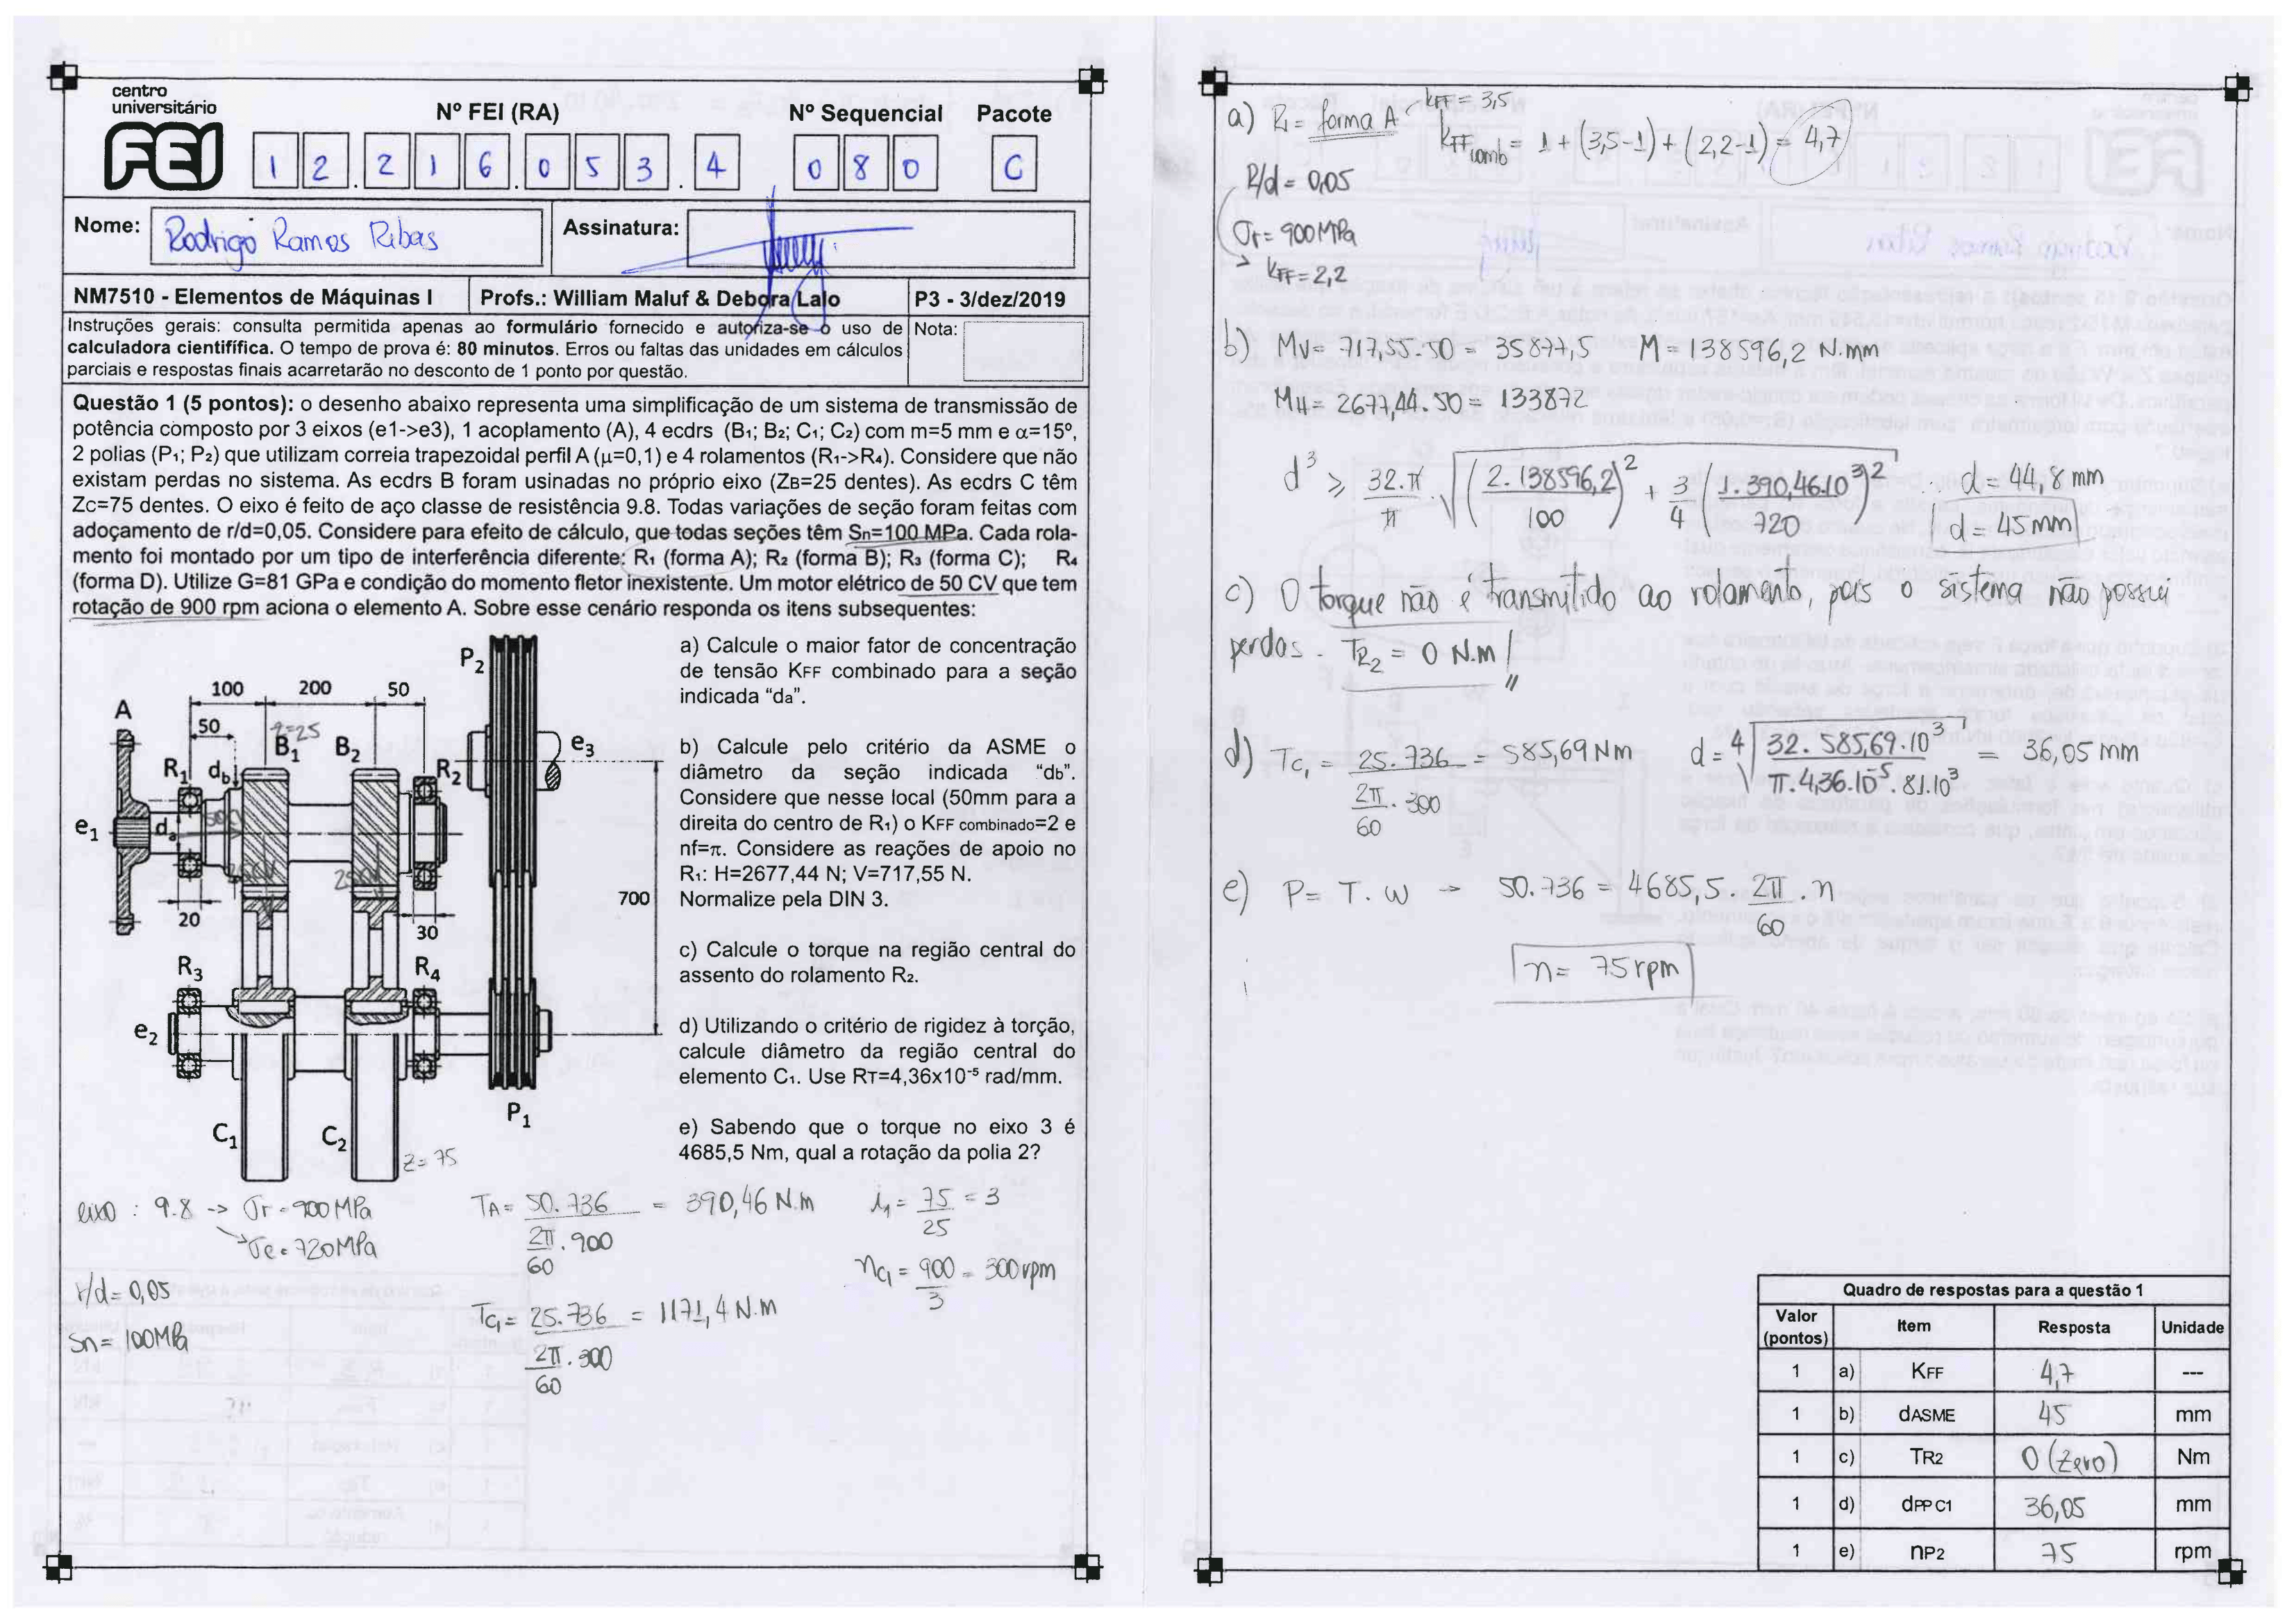 centro
universitário
FEI
Nº FEI (RA)
Nº Sequencial
Pacote
12.216.053.4
080
C
Nome:
Rodrigo Ramos Ribas
Assinatura:
NM7510 - Elementos de Máquinas I
Profs.: William Maluf & Debora Lalo
P3 - 3/dez/2019
Instruções gerais: consulta permitida apenas ao formulário fornecido e autoriza-se o uso de
calculadora cientifífica. O tempo de prova é: 80 minutos. Erros ou faltas das unidades em cálculos
parciais e respostas finais acarretarão no desconto de 1 ponto por questão.
Nota:
Questão 1 (5 pontos): o desenho abaixo representa uma simplificação de um sistema de transmissão de
potência composto por 3 eixos (e1->e3), 1 acoplamento (A), 4 ecdrs (B1; B2; C1; C2) com m=5 mm e α=15º,
2 polias (P1; P2) que utilizam correia trapezoidal perfil A (µ=0,1) e 4 rolamentos (R1->R4). Considere que não
existam perdas no sistema. As ecdrs B foram usinadas no próprio eixo (ZB=25 dentes). As ecdrs C têm
Zc=75 dentes. O eixo é feito de aço classe de resistência 9.8. Todas variações de seção foram feitas com
adoçamento de r/d=0,05. Considere para efeito de cálculo, que todas seções têm Sn=100 MPa. Cada rola-
mento foi montado por um tipo de interferência diferente: R1 (forma A); R2 (forma B); R3 (forma C); R4
(forma D). Utilize G=81 GPa e condição do momento fletor inexistente. Um motor elétrico de 50 CV que tem
rotação de 900 rpm aciona o elemento A. Sobre esse cenário responda os itens subsequentes:
a) Calcule o maior fator de concentração
de tensão KFF combinado para a seção
indicada “da”.
b) Calcule pelo critério da ASME o
diâmetro da seção indicada “db”.
Considere que nesse local (50mm para a
direita do centro de R1) o KFF combinado=2 e
nf=π. Considere as reações de apoio no
R1: H=2677,44 N; V=717,55 N.
Normalize pela DIN 3.
c) Calcule o torque na região central do
assento do rolamento R2.
d) Utilizando o critério de rigidez à torção,
calcule diâmetro da região central do
elemento C1. Use RT=4,36x10-5 rad/mm.
e) Sabendo que o torque no eixo 3 é
4685,5 Nm, qual a rotação da polia 2?
P2
100 200 50
A
50
z=25
B1 B2
e3
R1 db
R2
e1
da
50CV
25CV
25CV
700
20
30
R3
R4
e2
P1
C1
C2
z=75
eixo : 9.8 -> σr = 900MPa
σe = 720MPa
r/d = 0,05
Sn = 100MPa
TA = 50.736 / (2π/60 . 900) = 390,46 N.m
i1 = 75/25 = 3
nC1 = 900/3 = 300rpm
TC1 = 25.736 / (2π/60 . 300) = 1171,4 N.m
a) R1 = forma A
KFF = 3,5
KFFcomb = 1 + (3,5-1) + (2,2-1) = 4,7
R/d = 0,05
σr = 900MPa
-> KFF = 2,2
b) MV = 717,55.50 = 35877,5 M = 138596,2 N.mm
MH = 2677,44.50 = 133872
d³ ≥ 32.π/π . √((2.138596,2/100)² + 3/4 (1.390,46.10³/720)²) ∴ d = 44,8mm
d = 45mm
c) O torque não é transmitido ao rolamento, pois o sistema não possui
perdas. TR2 = 0 N.m
d) TC1 = 25.736 / (2π/60 . 300) = 585,69 Nm d = ⁴√(32. 585,69.10³ / π.4,36.10-5.81.10³) = 36,05 mm
e) P = T.w -> 50.736 = 4685,5. 2π/60 . n
n = 75rpm
Quadro de respostas para a questão 1
Valor (pontos) Item Resposta Unidade
1 a) KFF 4,7 ---
1 b) dASME 45 mm
1 c) TR2 0 (Zero) Nm
1 d) dPP C1 36,05 mm
1 e) nP2 75 rpm